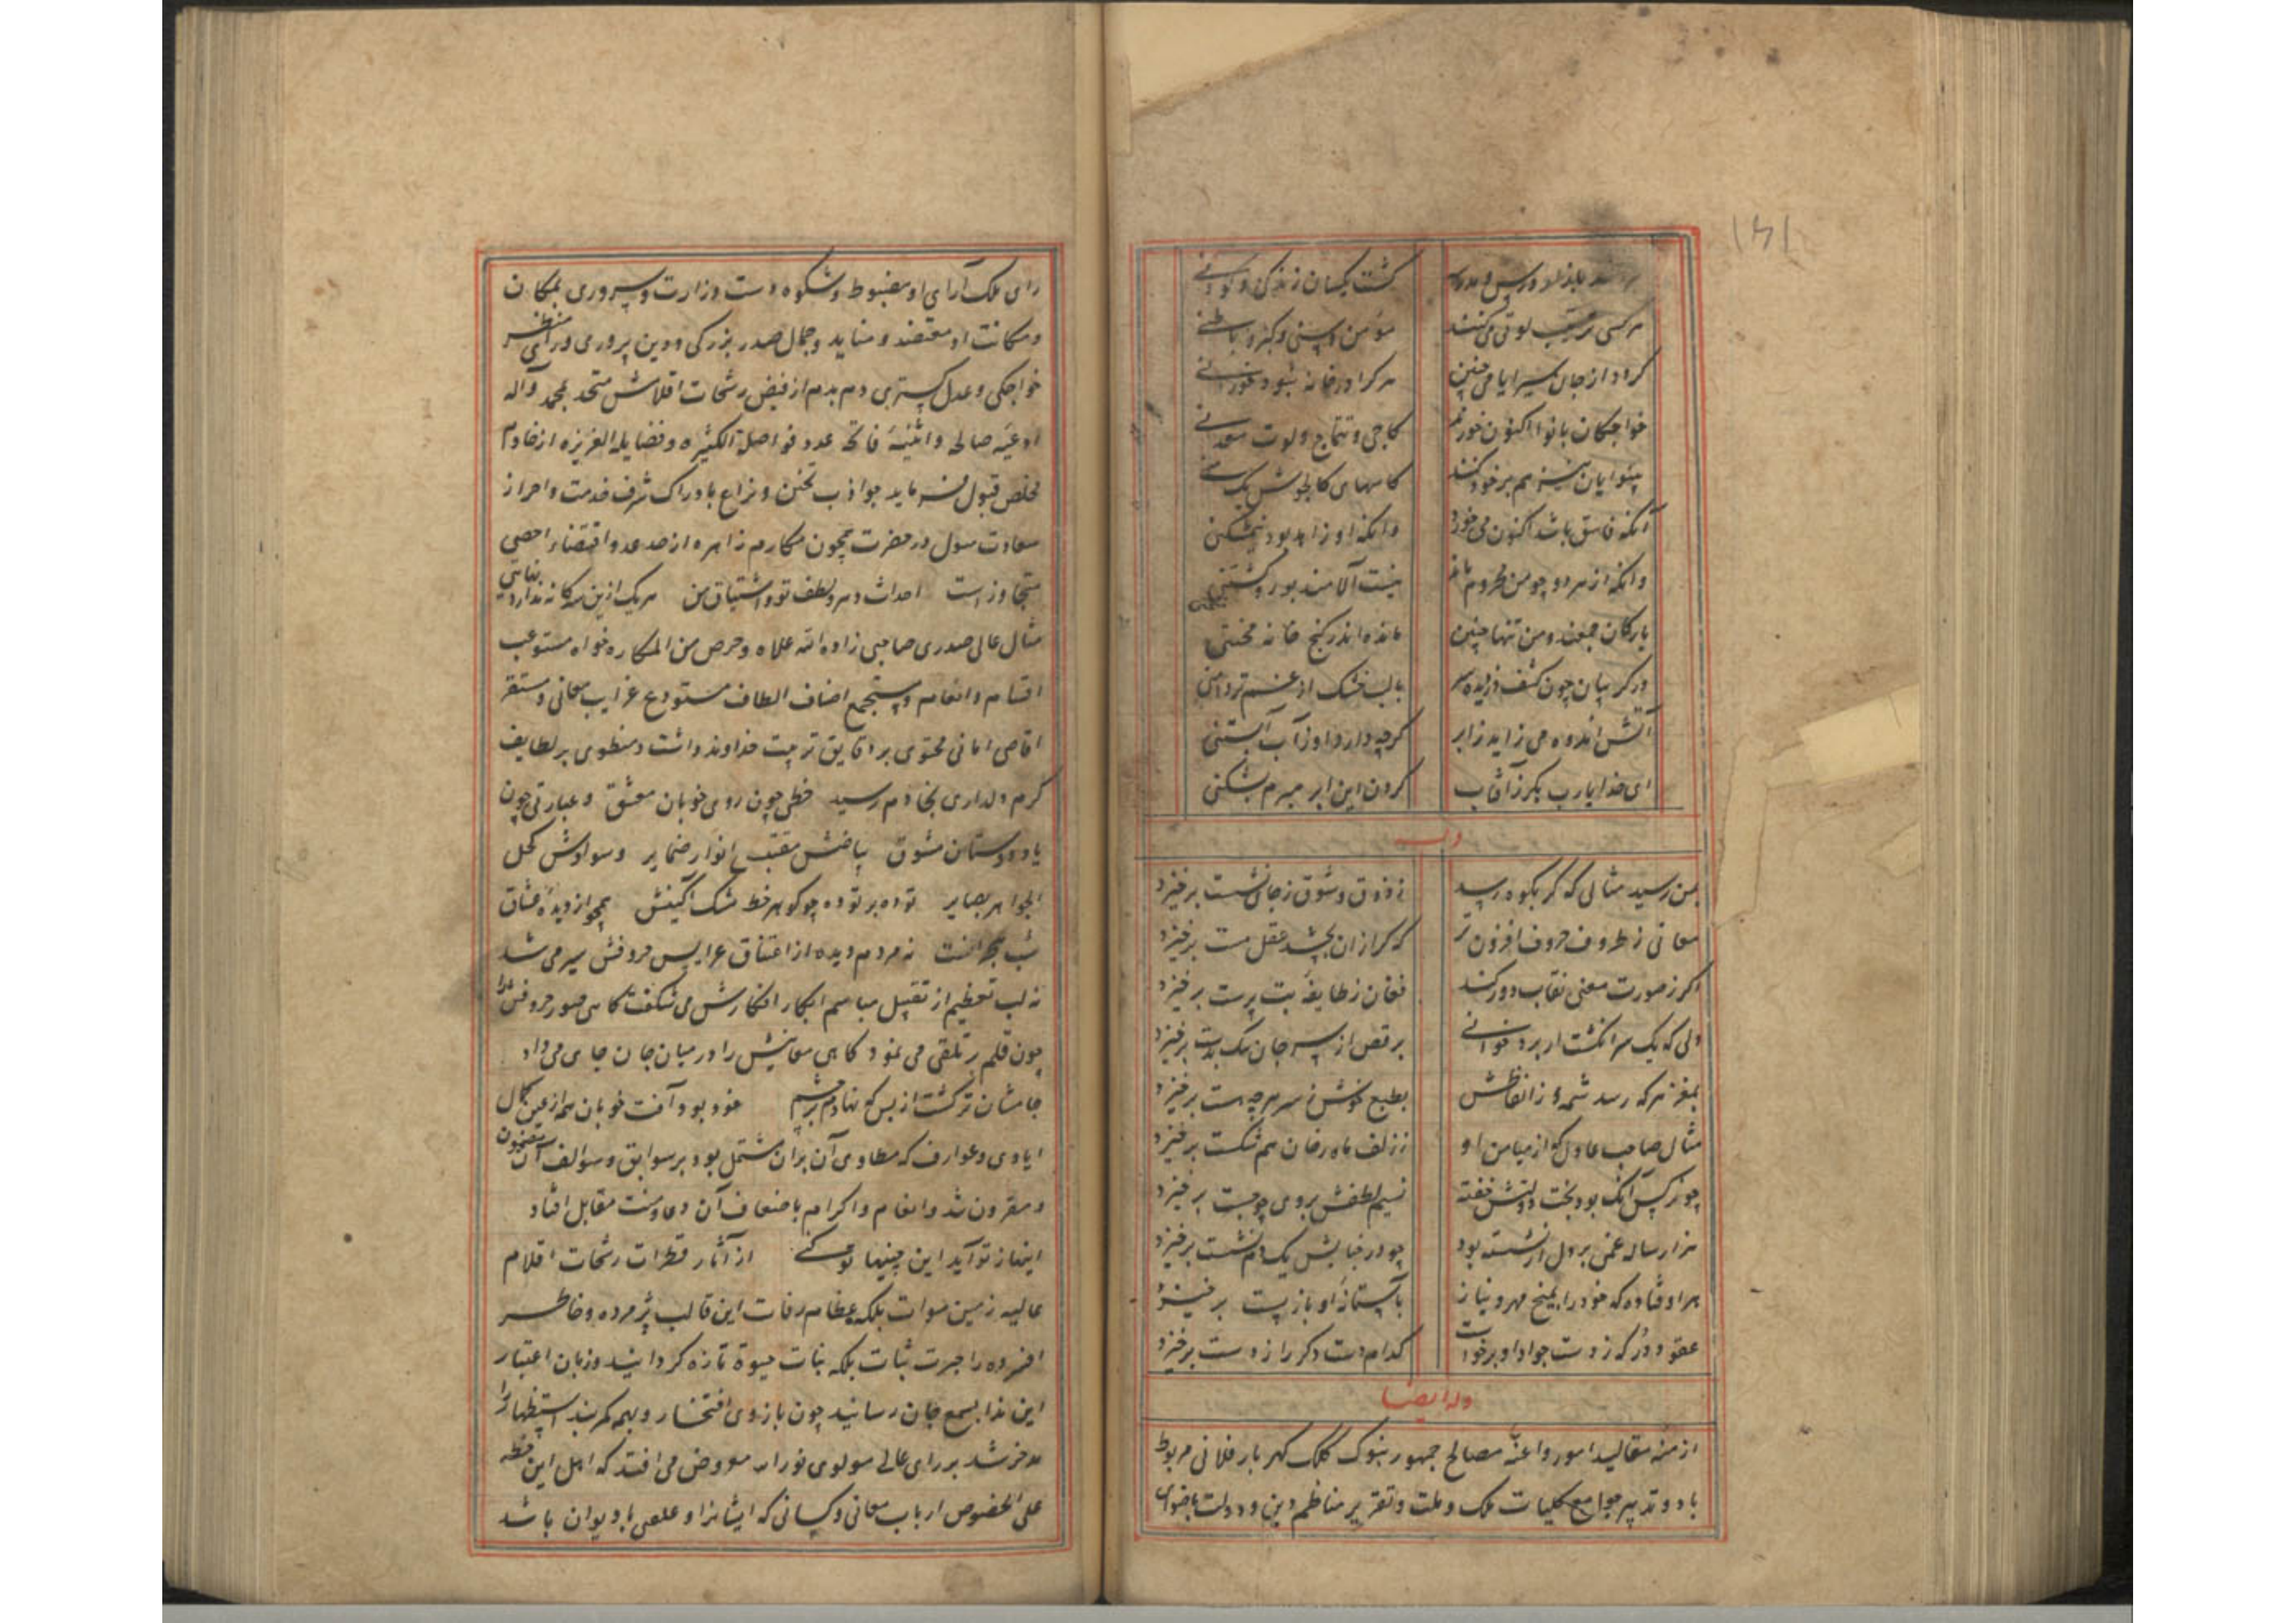 ۱۴۱
گشت یکسان زندگی و
هر کسی ترتیب لوتی می‌کنند مؤمن و سنی و گبر و باطنی
کرد از جان هر کرا در خانه بود
خواجگان با نوا اکنون خورند کاچی و تتماج و لوت معدنی
هم بر خود کنند کاسهای
آنکه فاسق باشد اکنون می خورد وانکه او زاهد بود
وانکه از هر دو چو من محروم ماند نیست الا
یارکان جمعند و من تنها چنین مانده اندر کنج خانه
در گریبان چون کشف دزدیده سر با لب خشک از غم تردامنی
آتش اندوه می زاید ز ابر گرچه دارد او ز آب آبستنی
ای خدا یا رب بگرز آفتاب گردن این ابر مبرم بشکنی
وله
بمن رسید مثالی که گر بکوه رسد ز ذوق و شوق ز جای نشست برخیزد
معانی ز ظروف حروف افزون تر که گر ازان بچشد عقل مست برخیزد
اگر ز صورت معنی نقاب دور کند فغان ز طایفهٔ بت پرست برخیزد
ولی که یک سر انگشت ار برو خوانی برقص از سر جان
بمغز هر که رسد شمهٔ ز الفاظش بطبع خوش ز سر هرچه هست برخیزد
مثال صاحب عادل که از میامن او ز زلف ماه رخان هم شکست برخیزد
چو نرگس آنک بود بخت دولتش خفته نسیم لطفش بروی چو جست برخیزد
هزار ساله غمی بر دل ار نشسته بود چو در خیالش یک دم نشست برخیزد
هر اوفتاده که خود را بمیخ مهر و نیاز بآستانهٔ او باز بست برخیزد
عقود در که ز دست جواد او برخاست کدام دست دگر را ز دست برخیزد
وله ایضا
ازمهٔ مقالید امور و اعنهٔ مصالح جمهور بنوک کلک گهربار فلانی مربوط
باد و تدبیر جوامع کلیات ملک و ملت و تقریر مناظم دین و دولت
رای ملک آرای او مضبوط و شکوه دست وزارت و سروری بمکان
و مکانت او معتضد و جمال صدر بزرگی و دین پروری
خواجگی و عدل گستری دم بدم از فیض رشحات اقلامش متحد بمحمد و آله
ادعیهٔ صالحه و اثنیهٔ فاتحه عدد فواضله الکثیره و فضایله الغزیره از خادم
مخلص قبول فرماید جواذب تحنن و نزاع بادراک شرف خدمت و احراز
سعادت مثول در حضرت همچون مکارم زاهره از حد عد و اقتضاء احصی
متجاوز است احداث دهر و لطف تو و اشتیاق من هر یک ازین سه گانه ندارد نهایتی
مثال عالی صدری صاحبی زاده الله علاه و حرص من المکاره خواه مستوعب
اقسام و انعام و مستجمع اصناف الطاف مستودع غرایب معانی و مستقر
اقاصی امانی محتوی بر دقایق تربیت خداوند داشت و منطوی بر لطایف
کرم و دلداری بخادم رسید خطی چون روی خوبان معشق و عبارتی چون
یاد دوستان مشوق بیاضش مقتبس انوار ضمایر و سوادش کحل
الجواهر بصایر توده بر توده چو گوهر خط مشک آگینش همچو از دیدهٔ عشاق
شب نه مردم دیده از اعتناق عرایس حروفش سیر می شد
نه لب تعظیم از تقبیل مباسم ابکار افکارش می شکفت گاهی صور حروفش را
چون قلم بر تلقی می نمود گاهی معانیش را در میان جان جای می داد
جامشان تر گشت از بس که نهادم بر چشم خود بود آفت خوبان همه از عین کمال
ایادی و عوارف که مطاوی آن بران مشتمل بود بر سوابق و سوالف آن مضمون
و مقرون شد و انعام و اکرام باضعاف آن دعا و منت مقابل افتاد
اینها ز تو آید این چنینها تو کنی از آثار قطرات رشحات اقلام
عالیه زمین موات بلکه عظام رفات این قالب پژمرده و خاطر
افسرده را بلکه نبات حیوة تازه گردانید و زبان اعتبار
این ندا بسمع جان رسانید چون بازوی افتخار و کمربند استظهار را
شد بر رای عالی مولوی معروض می افتد که اهل این خطه
علی الخصوص ارباب معانی و کسانی که ایشانرا باد یوان باشد